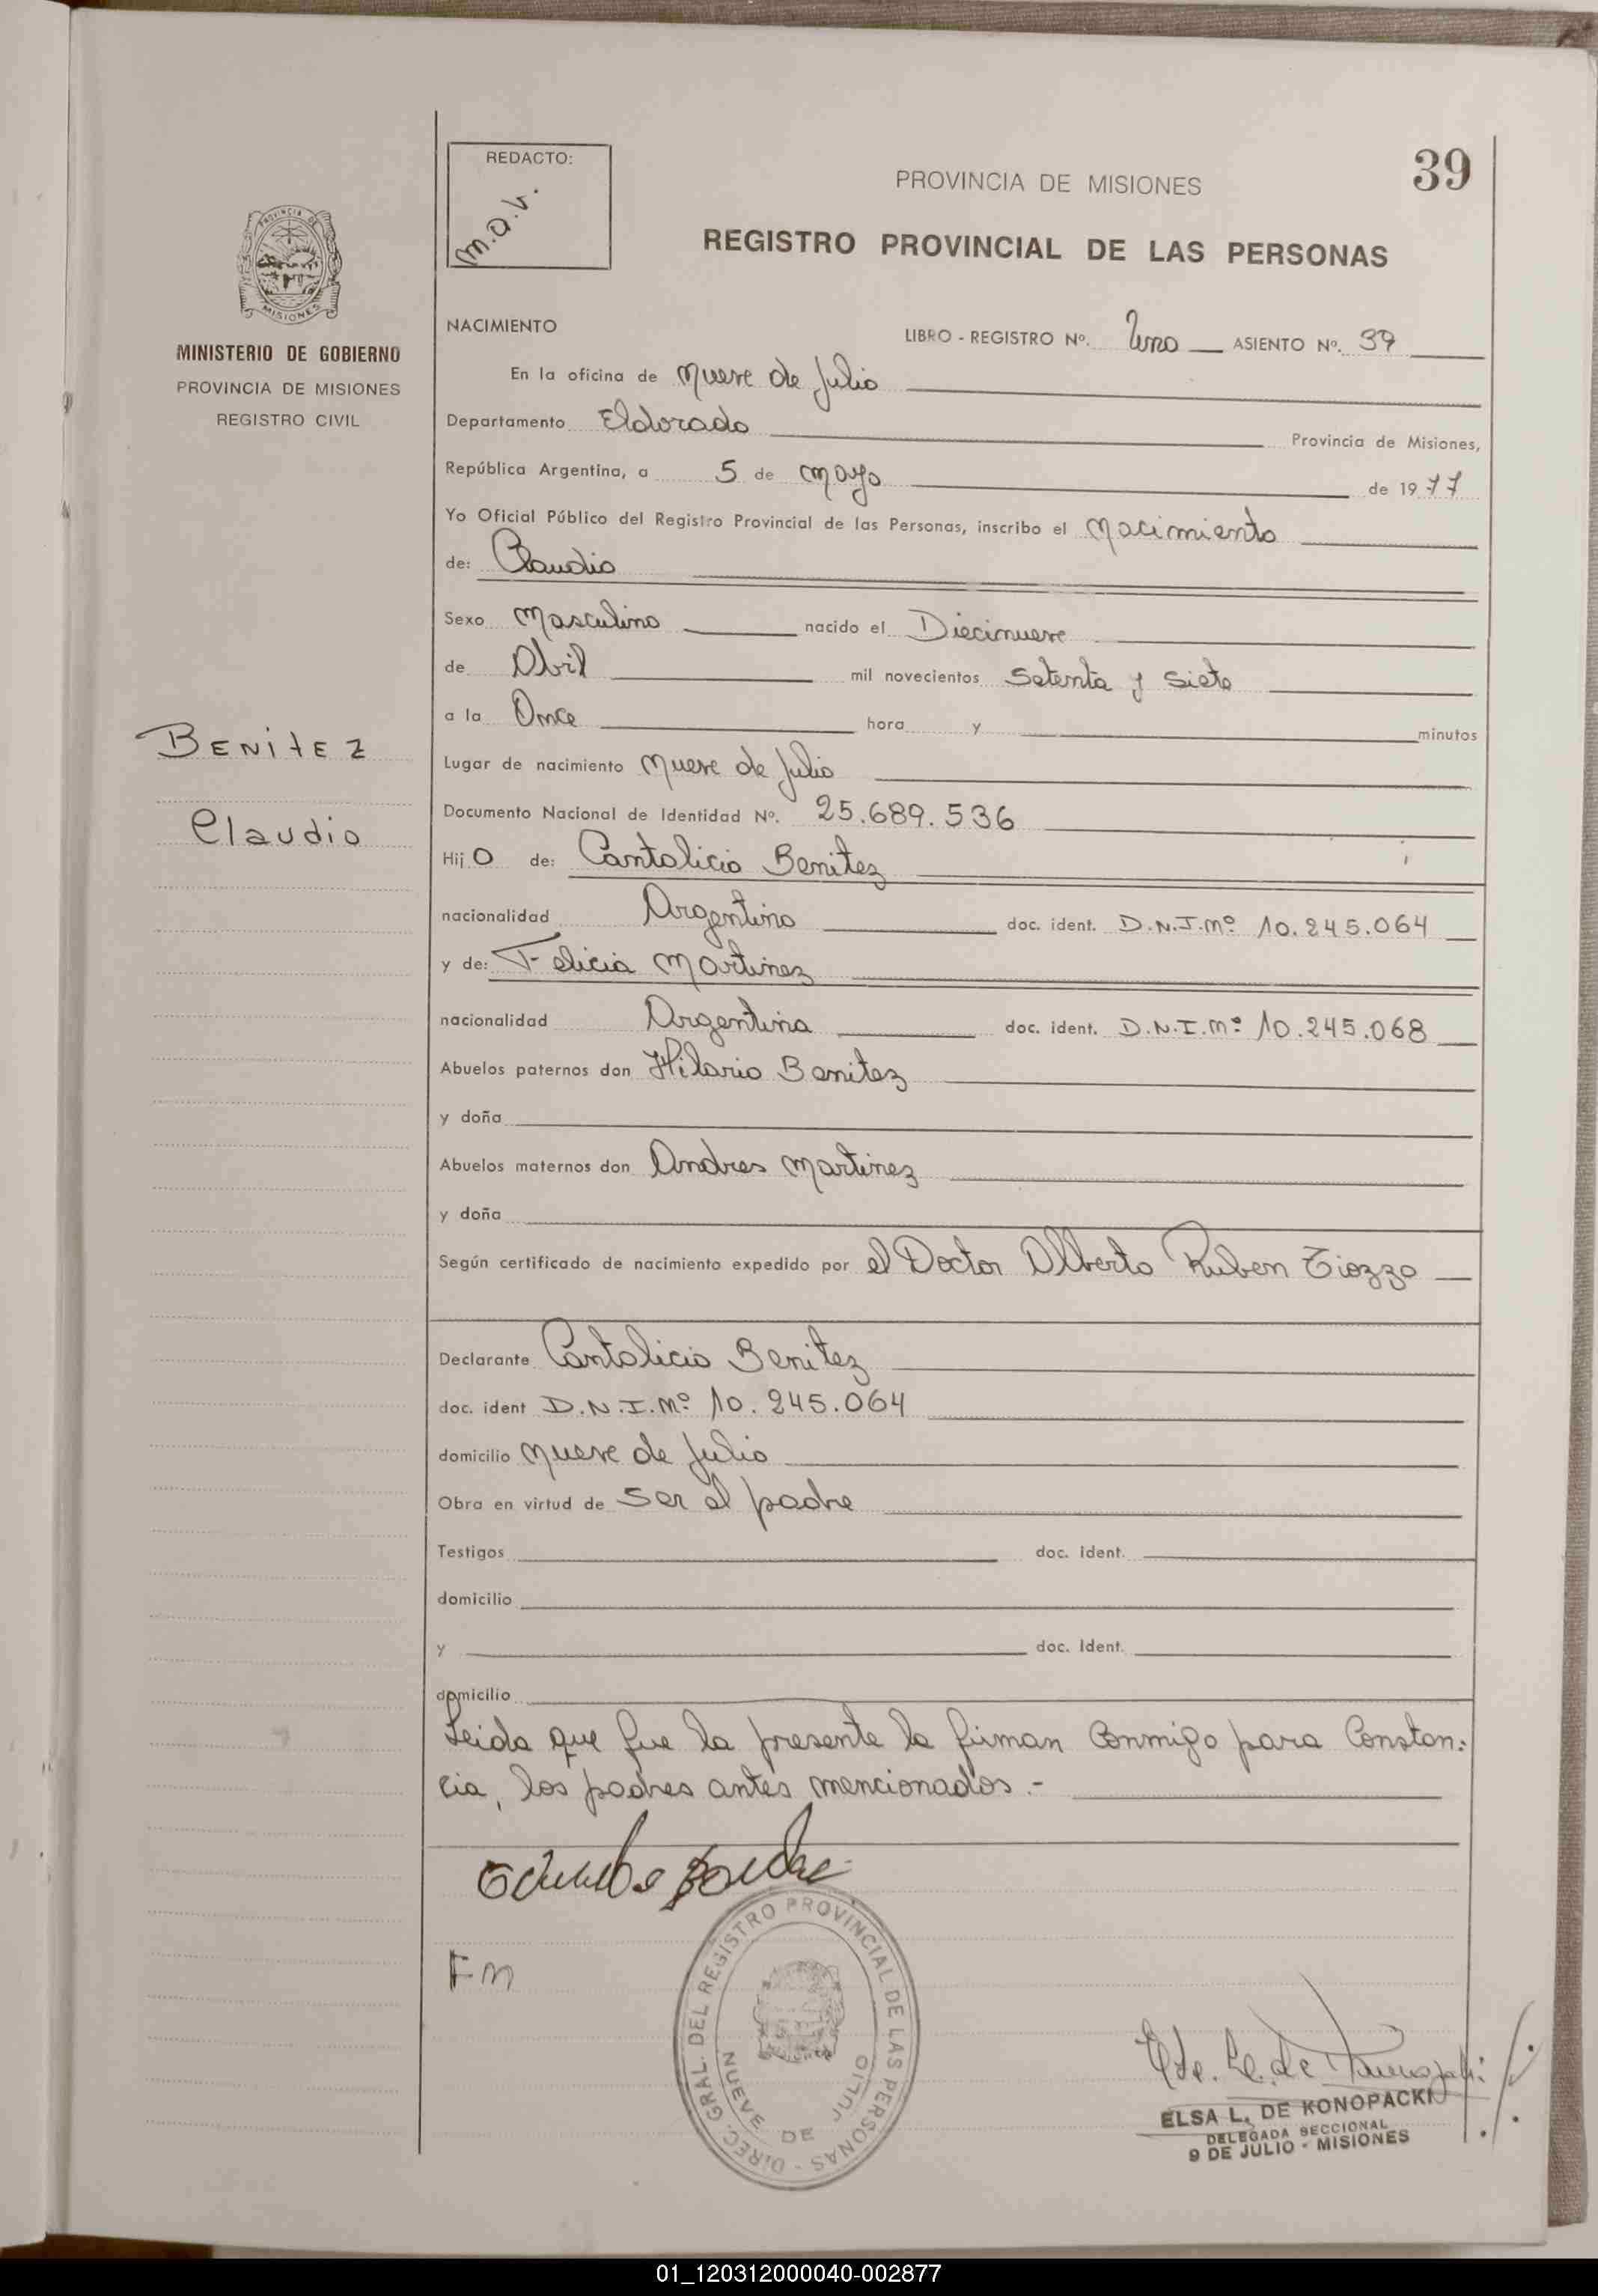 39
REDACTO:
m.a.v.
PROVINCIA DE MISIONES
REGISTRO PROVINCIAL DE LAS PERSONAS
PROVINCIA DE
MISIONES
MINISTERIO DE GOBIERNO
PROVINCIA DE MISIONES
REGISTRO CIVIL
BENitEZ
Claudio
NACIMIENTO
LIBRO - REGISTRO Nº. Uno ASIENTO Nº. 39
En la oficina de Nueve de Julio
Departamento Eldorado Provincia de Misiones,
República Argentina, a 5 de mayo de 1977
Yo Oficial Público del Registro Provincial de las Personas, inscribo el Nacimiento
de: Claudio
Sexo Masculino nacido el Diecinueve
de Abril mil novecientos Setenta y Siete
a la Once hora y minutos
Lugar de nacimiento Nueve de Julio
Documento Nacional de Identidad Nº. 25.689.536
Hijo de: Cantalicio Benitez
nacionalidad Argentino doc. ident. D.N.I.Nº 10.245.064
y de: Felicia Martinez
nacionalidad Argentina doc. ident. D.N.I.Nº 10.245.068
Abuelos paternos don Hilario Benitez
y doña
Abuelos maternos don Andres Martinez
y doña
Según certificado de nacimiento expedido por el Doctor Alberto Ruben Tiozzo
Declarante Cantalicio Benitez
doc. ident D.N.I.Nº 10.245.064
domicilio Nueve de Julio
Obra en virtud de Ser el padre
Testigos doc. ident.
domicilio
y doc. Ident.
domicilio
Leida que fue la presente la firman Conmigo para Constan:
cia, los padres antes mencionados.-
FM
DIREC. GRAL. DEL REGISTRO PROVINCIAL DE LAS PERSONAS -
NUEVE DE JULIO
ELSA L. DE KONOPACKI
DELEGADA SECCIONAL
9 DE JULIO - MISIONES
01_120312000040-002877